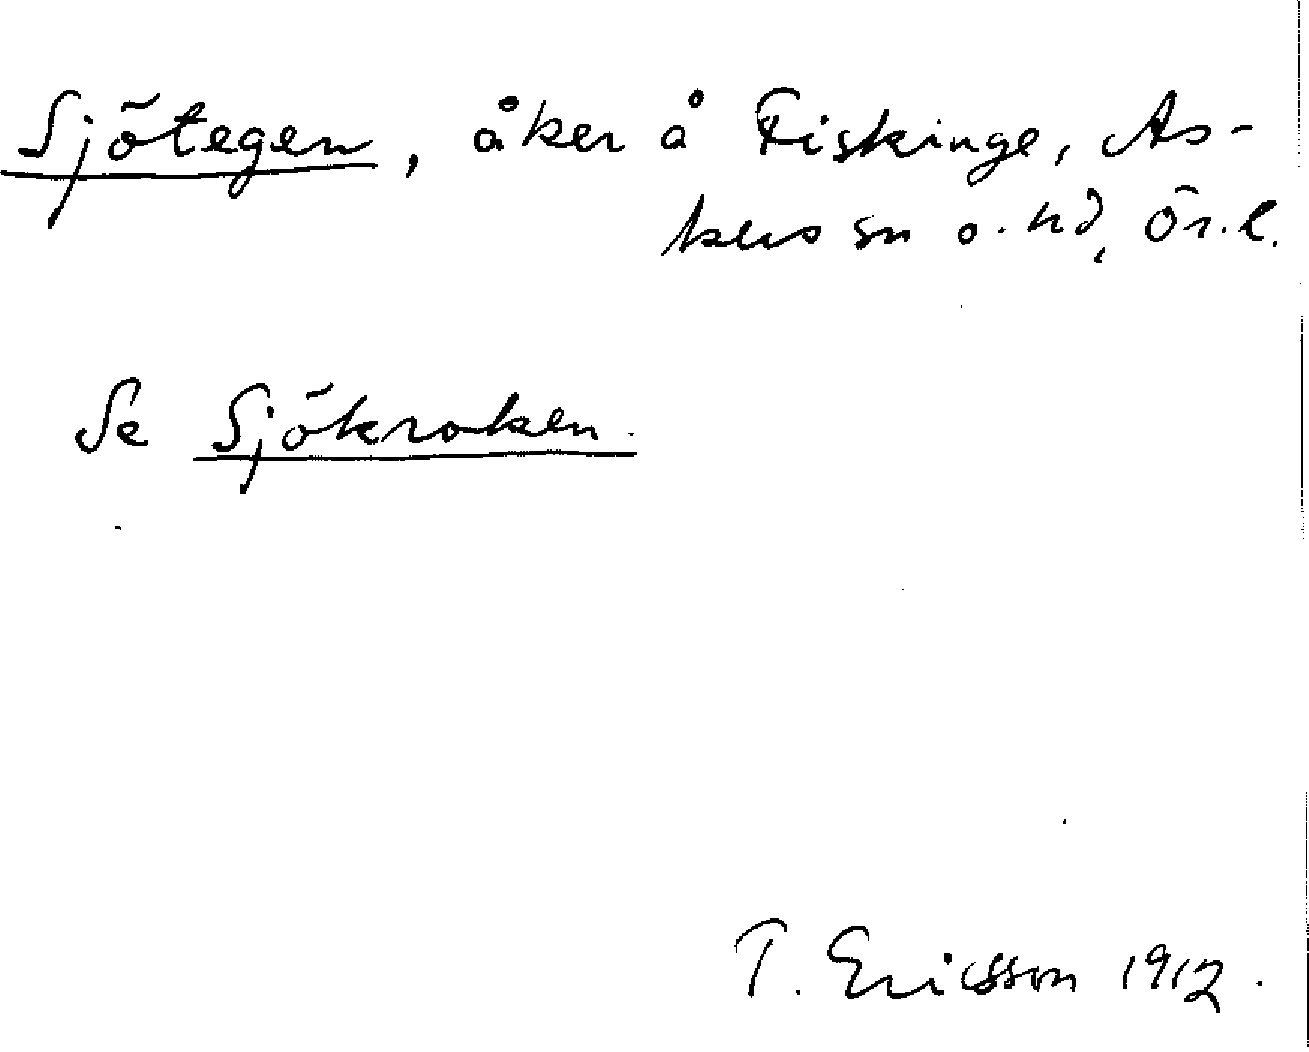 Sjötegen, åker å Fiskinge, As-
kers sn o. hd, Ör. l.
Se Sjökroken.
T. Ericsson 1912.